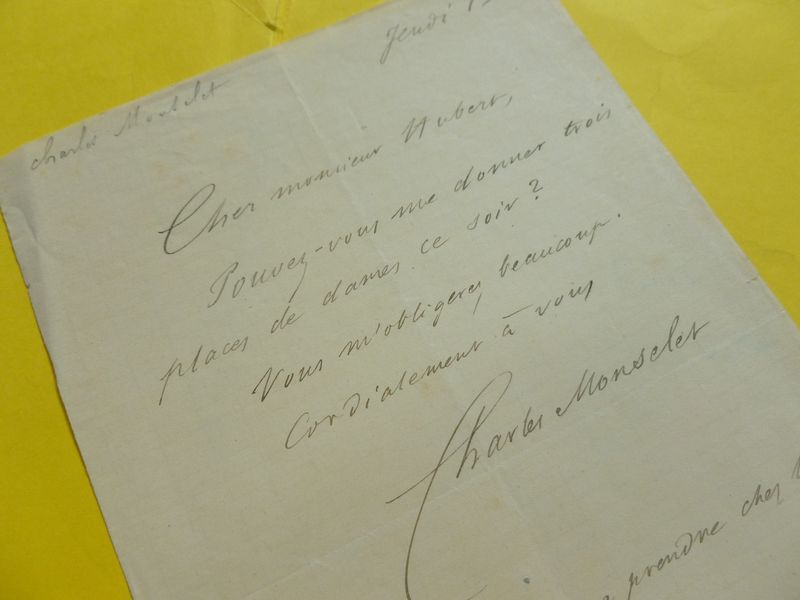 Charles Monselet
Jeudi
Cher monsieur Hubert,
Pouvez-vous me donner trois
places de dames ce soir?
Vous m'obligerez beaucoup.
Cordialement à vous
Charles Monselet
prendre chez